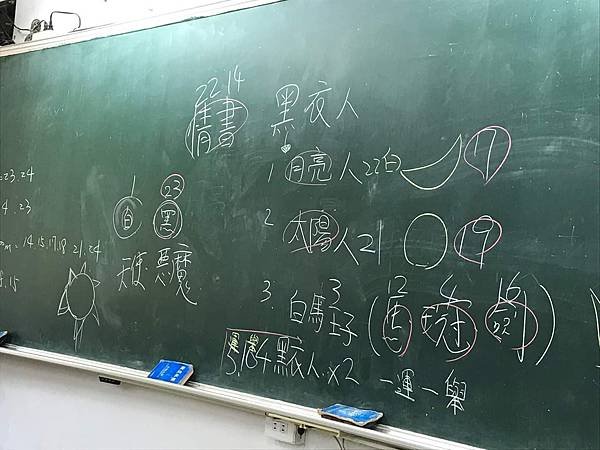 22 14
情書 黑衣人
=23.24
4.23
= 14 15.17.18 21.24
.15
1 23
白 黑
天使 惡魔
1 月亮人22白 17
2 太陽人21 19
3. 白馬王子 3 (馬 12 王冠 4 16)
黑衣人x2
一運一舉